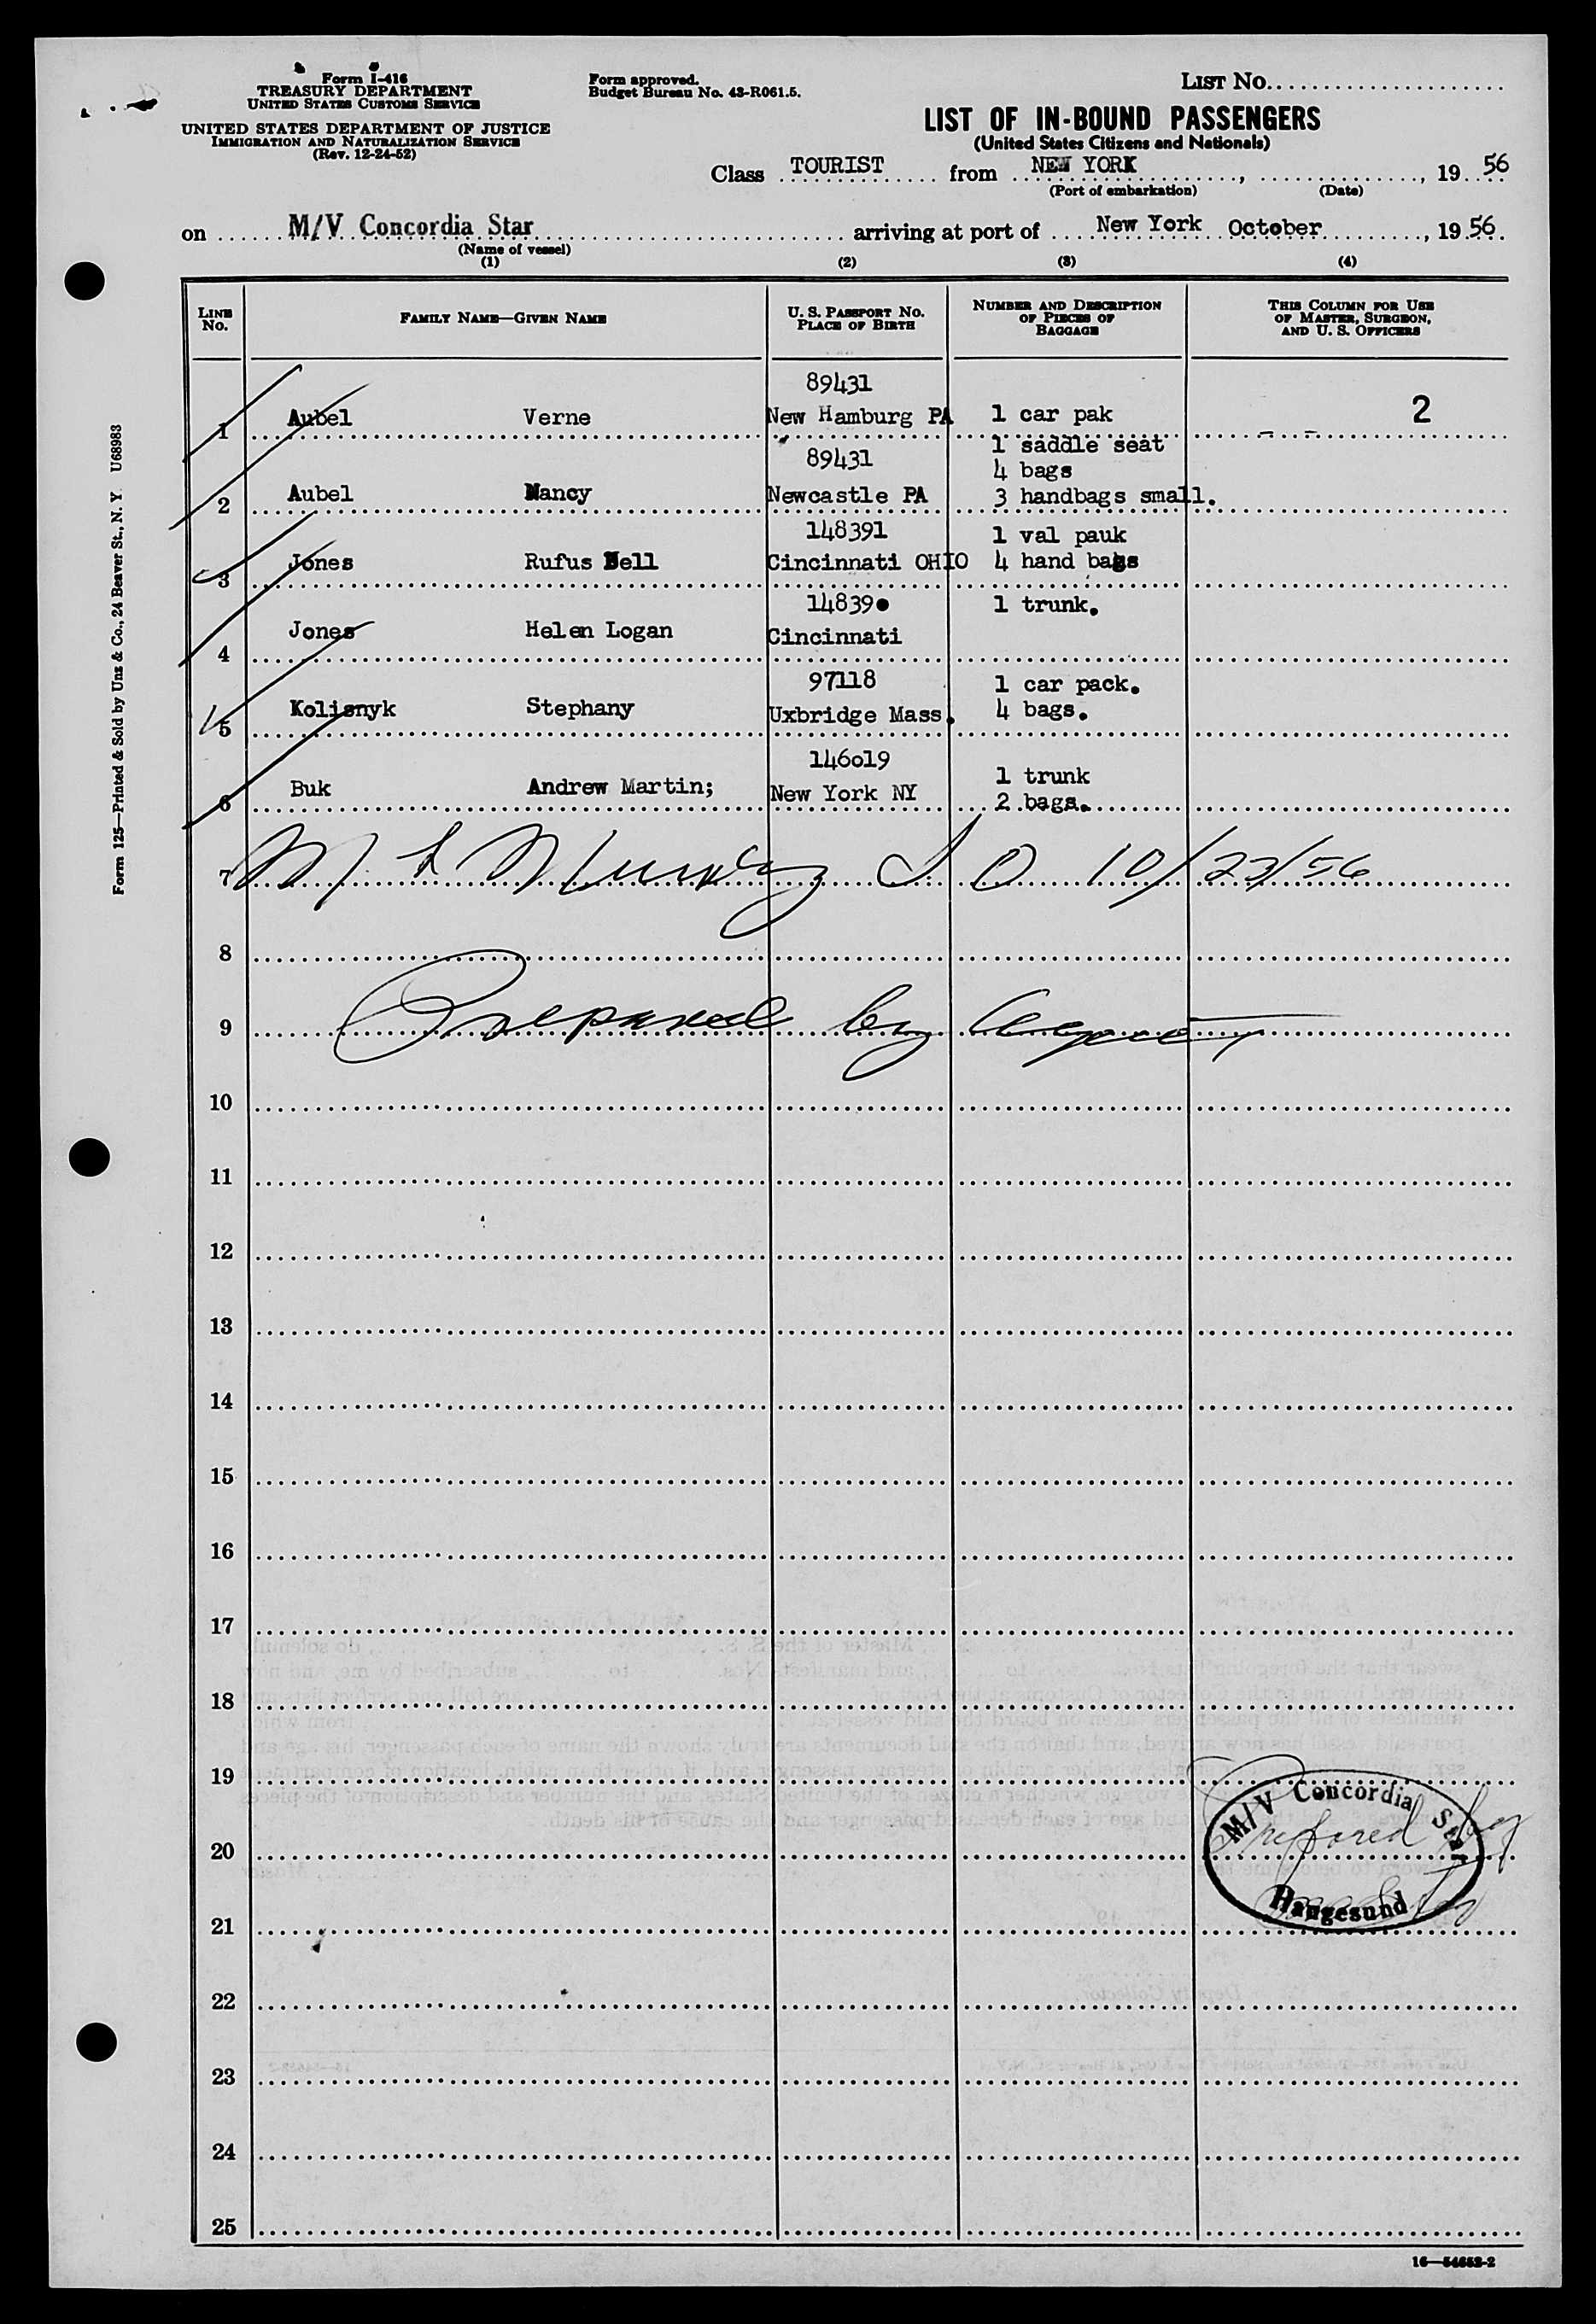 Form I-416
TREASURY DEPARTMENT
UNITED STATES CUSTOMS SERVICE
UNITED STATES DEPARTMENT OF JUSTICE
IMMIGRATION AND NATURALIZATION SERVICE
(Rev. 12-24-52)
Form approved.
Budget Bureau No. 43-R061.5.
LIST NO.
LIST OF IN-BOUND PASSENGERS
(United States Citizens and Nationals)
Class TOURIST from NEW YORK, , 19 56
(Port of embarkation) (Date)
on M/V Concordia Star arriving at port of New York October, 19 56
(Name of vessel)
(1) (2) (3) (4)
LINE No. FAMILY NAME—GIVEN NAME U. S. PASSPORT No. PLACE OF BIRTH NUMBER AND DESCRIPTION OF PIECES OF BAGGAGE THIS COLUMN FOR USE OF MASTER, SURGEON, AND U. S. OFFICERS
89431
1 Aubel Verne New Hamburg PA 1 car pak 2
1 saddle seat
89431 4 bags
2 Aubel Nancy Newcastle PA 3 handbags small.
148391 1 val pauk
3 Jones Rufus Bell Cincinnati OHIO 4 hand bags
14839 1 trunk.
4 Jones Helen Logan Cincinnati
97118 1 car pack.
5 Kolisnyk Stephany Uxbridge Mass. 4 bags.
146019 1 trunk
6 Buk Andrew Martin; New York NY 2 bags.
7 M L 10/23/56
8
9 Prepared by Agent
10
11
12
13
14
15
16
17
18
19
20
21
22
23
24
25
M/V Concordia Star
Prepared by
Haugesund
Form 125—Printed & Sold by Unz & Co., 24 Beaver St., N. Y. U68983
16—54653-2